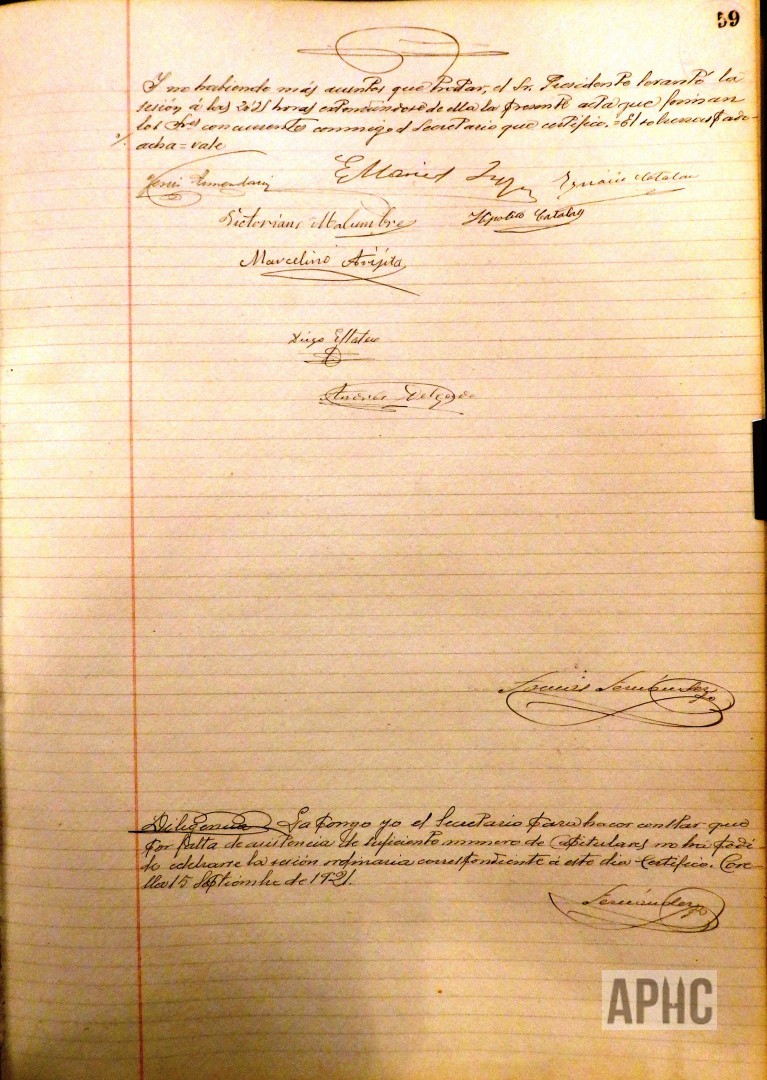 59
Y no habiendo más asuntos que tratar, el Sr. Presidente levantó la
sesión á las 20'25 horas extendiéndose de ella la presente acta que firman
los Sres concurrentes conmigo el Secretario que certifico. = El
acha = vale
Victoriano Malumbre
Hipolito Catalan
Ignacio Catalan
Marcelino Arigita
Andrés Delgado
Fernández
Diligencia La pongo yo el Secretario para hacer constar que
por falta de asistencia de suficiente número de Capitulares no ha podi-
do celebrarse la sesión ordinaria correspondiente á este día Certifico. Core-
lla 15 Septiembre de 1921.
Fernández
APHC